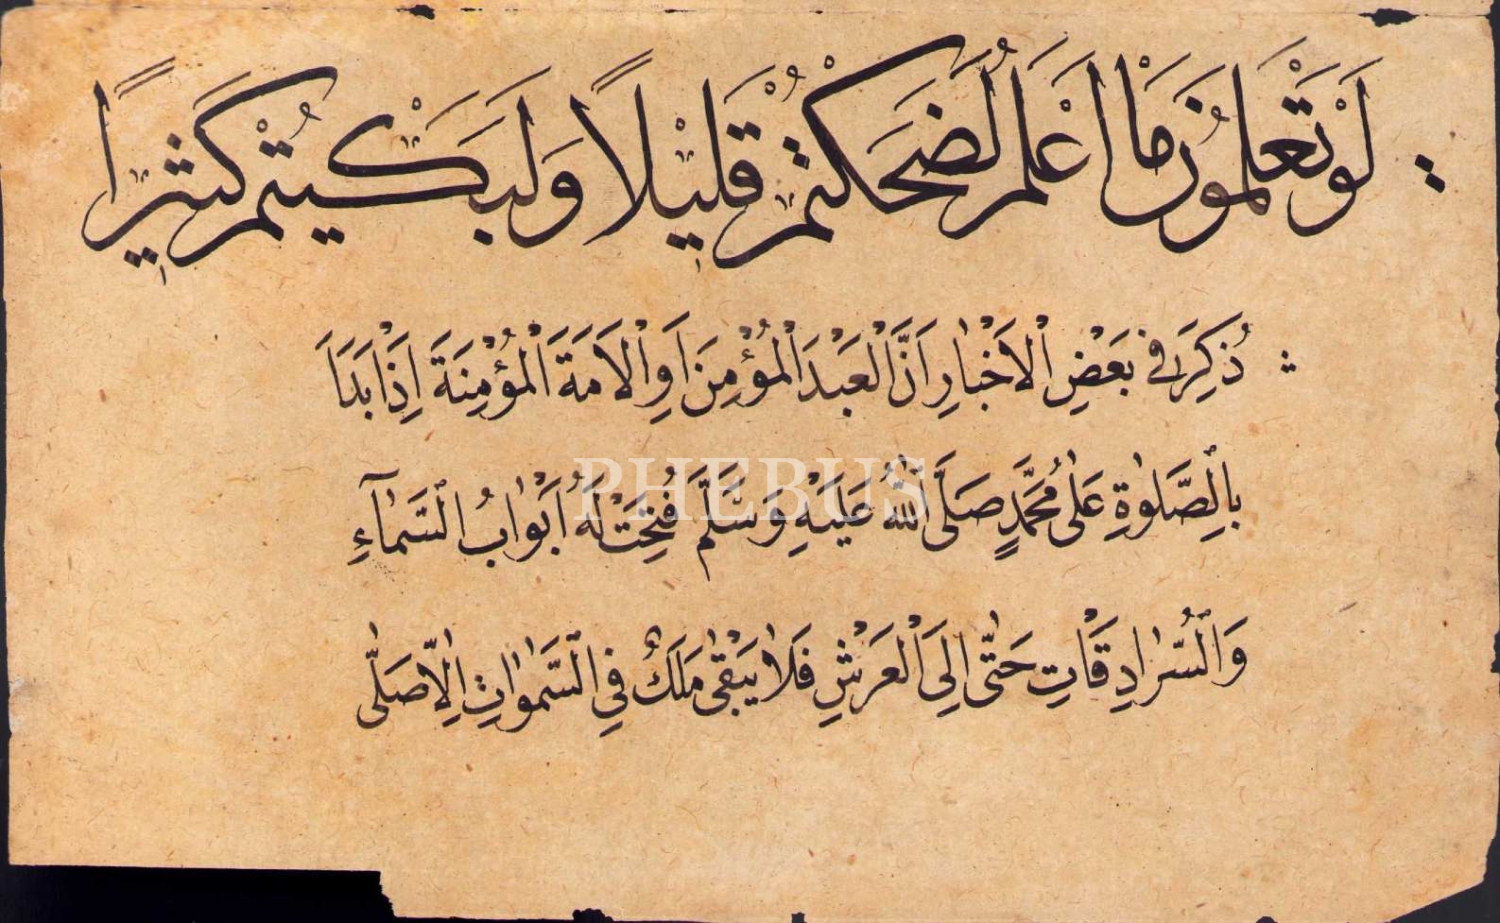 لَوْ تَعْلَمُونَ مَا اَعْلَمُ لَضَحَكْتُمْ قَلِيْلًا وَلَبَكَيْتُمْ كَثِيرًا
ذُكِرَ فِي بَعْضِ الْاَخْبَارِ اَنَّ الْعَبْدَ الْمُؤْمِنَ اَوِ الْاَمَةَ الْمُؤْمِنَةَ اِذَا بَدَاَ
بِالصَّلٰوةِ عَلٰى مُحَمَّدٍ صَلَّى اللّٰهُ عَلَيْهِ وَسَلَّمَ فُتِحَتْ لَهُ اَبْوَابُ السَّمَآءِ
وَالسُّرَادِقَاتِ حَتّٰى اِلَى الْعَرْشِ فَلَا يَبْقٰى مَلَكٌ فِي السَّمٰوَاتِ اِلَّا صَلّٰى
PHEBUS